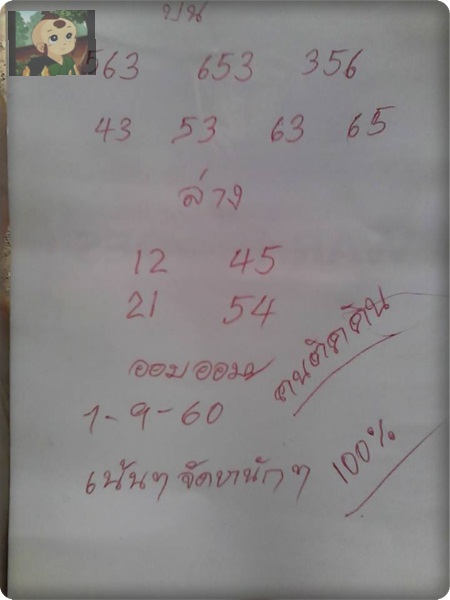 บน
563 653 356
43 53 63 65
ล่าง
12 45
21 54
ออมออมม
คนติดดิน
1-9-60
เน้นๆ จัดหนักๆ
100%